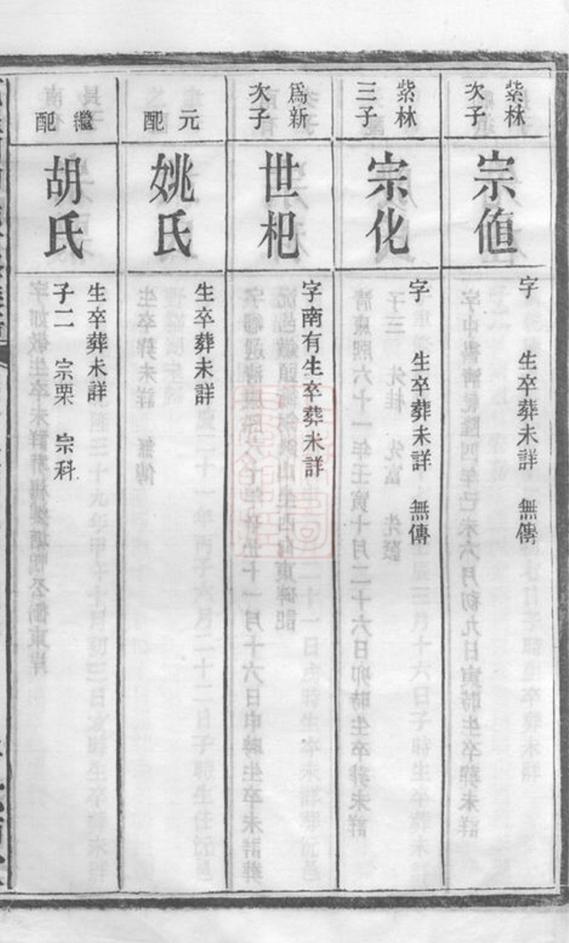 紫林
次子
宗値
字　生卒葬未詳　無傳
紫林
三子
宗化
字　生卒葬未詳　無傳
爲新
次子
世杞
字南有生卒葬未詳
元配
姚氏
生卒葬未詳
繼配
胡氏
生卒葬未詳
子二　宗栗　宗科